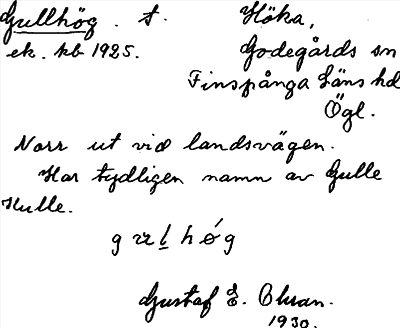 Gullhög. t. Höka,
ek. kb 1925. Godegårds sn
Finspånga Läns hd
Ögl.
Norr ut vid landsvägen.
Har tydligen namn av Gulle
Hulle.
Gustaf E. Ohran.
1930.